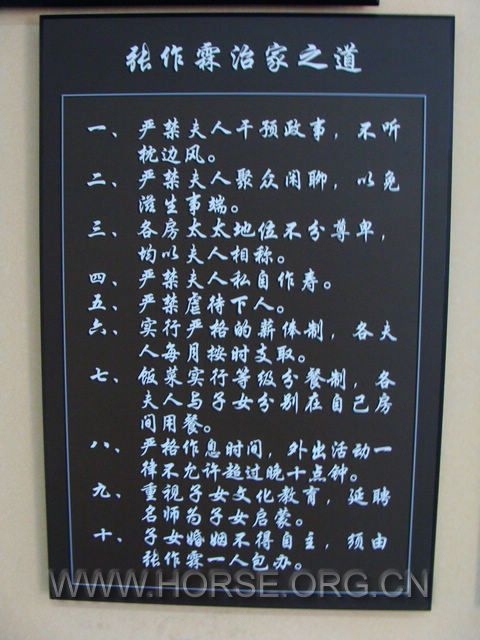 张作霖治家之道
一、严禁夫人干预政事，不听
枕边风。
二、严禁夫人聚众闲聊，以免
滋生事端。
三、各房太太地位不分尊卑，
均以夫人相称。
四、严禁夫人私自作寿。
五、严禁虐待下人。
六、实行严格的薪体制，各夫
人每月按时支取。
七、饭菜实行等级分餐制，各
夫人与子女分别在自己房
间用餐。
八、严格作息时间，外出活动一
律不允许超过晚十点钟。
九、重视子女文化教育，延聘
名师为子女启蒙。
十、子女婚姻不得自主，须由
张作霖一人包办。
WWW.HORSE.ORG.CN